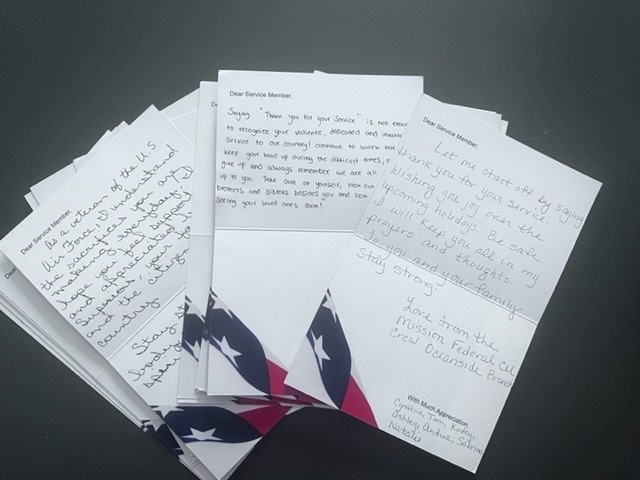 Dear Service Member,
As a veteran of the U.S.
Air Force I understand
the sacrifices you are
making everybody. I
hope you feel support
and appreciated
and the
country
Stay
Dear Service Member,
Saying "Thank you for your Service" is not enou
to recognize your valiente, dedicated and
service to our country! Continue to work
keep your head up during the difficult times,
give up and always remember we are all
up to you. Take care of yourself, look out
brothers and sisters besides you and look
seeing your loved ones soon!
Dear Service Member,
Let me start off by saying
thank you for your service
Wishing you joy over the
upcoming holidays. Be safe
I will keep you all in my
prayers and thoughts
to you and your family
Stay strong
Love from the
Mission Federal CU
Crew Oceanside Branch
With Much Appreciation,
Cynthia, Tom,
Ashley, Andrea, Sabrina
Natalie